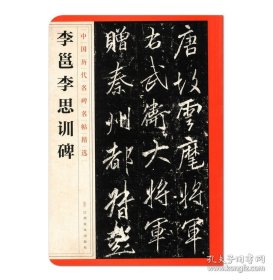 李邕李思训碑
中国历代名碑名帖精选
唐故雲麾將軍
右武衛大將軍
贈秦州都督
孔夫子旧书网